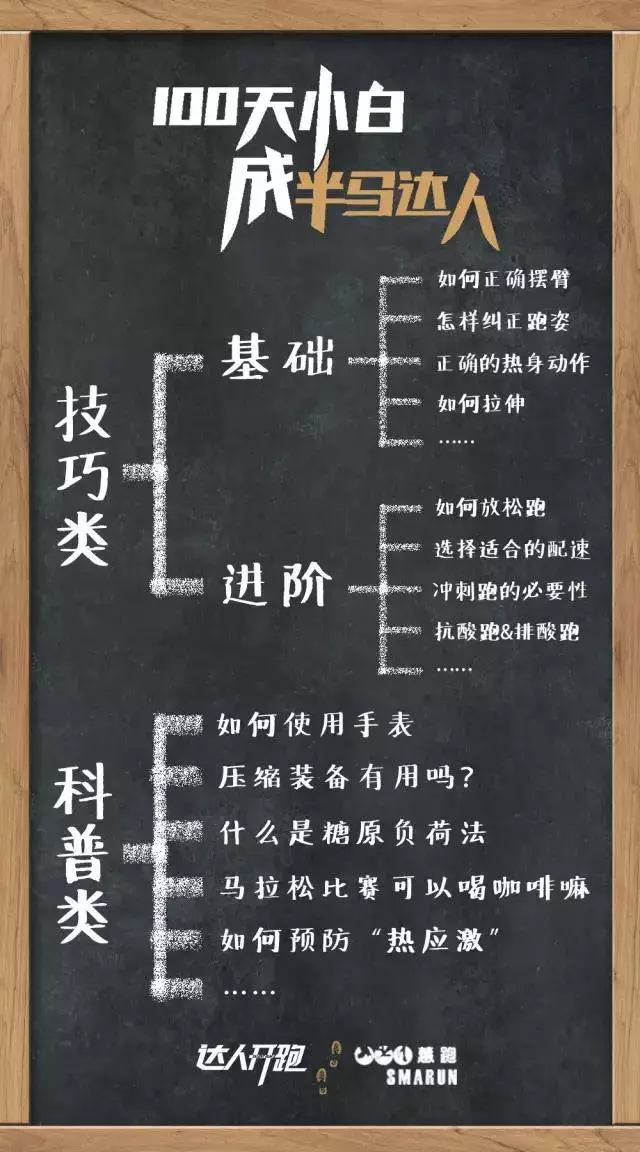 100天小白
成半马达人
技巧类
基础
如何正确摆臂
怎样纠正跑姿
正确的热身动作
如何拉伸
……
进阶
如何放松跑
选择适合的配速
冲刺跑的必要性
抗酸跑&排酸跑
……
科普类
如何使用手表
压缩装备有用吗？
什么是糖原负荷法
马拉松比赛可以喝咖啡嘛
如何预防“热应激”
……
达人开跑
慈跑
SMARUN